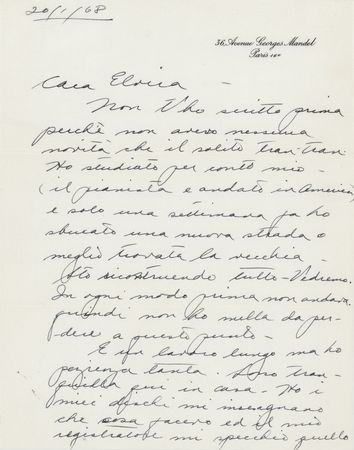 20/1/68
36, Avenue Georges Mandel
Paris 16e
Cara Elvira —
Non t'ho scritto prima
perchè non avevo nessuna
novità che il solito tran-tran.
Ho studiato per conto mio -
(il pianista è andato in America)
e solo una settimana fa ho
sbucato una nuova strada o
meglio trovata la vecchia -
Sto ricostruendo tutto - Vedremo.
In ogni modo prima non andava
quindi non ho nulla da per-
dere a questo punto -
E un lavoro lungo ma ho
pazienza tanta. Sono tran-
quilla qui in casa - Ho i
miei dischi mi insegnano
che cosa facevo ed il mio
registratore mi specchio quello